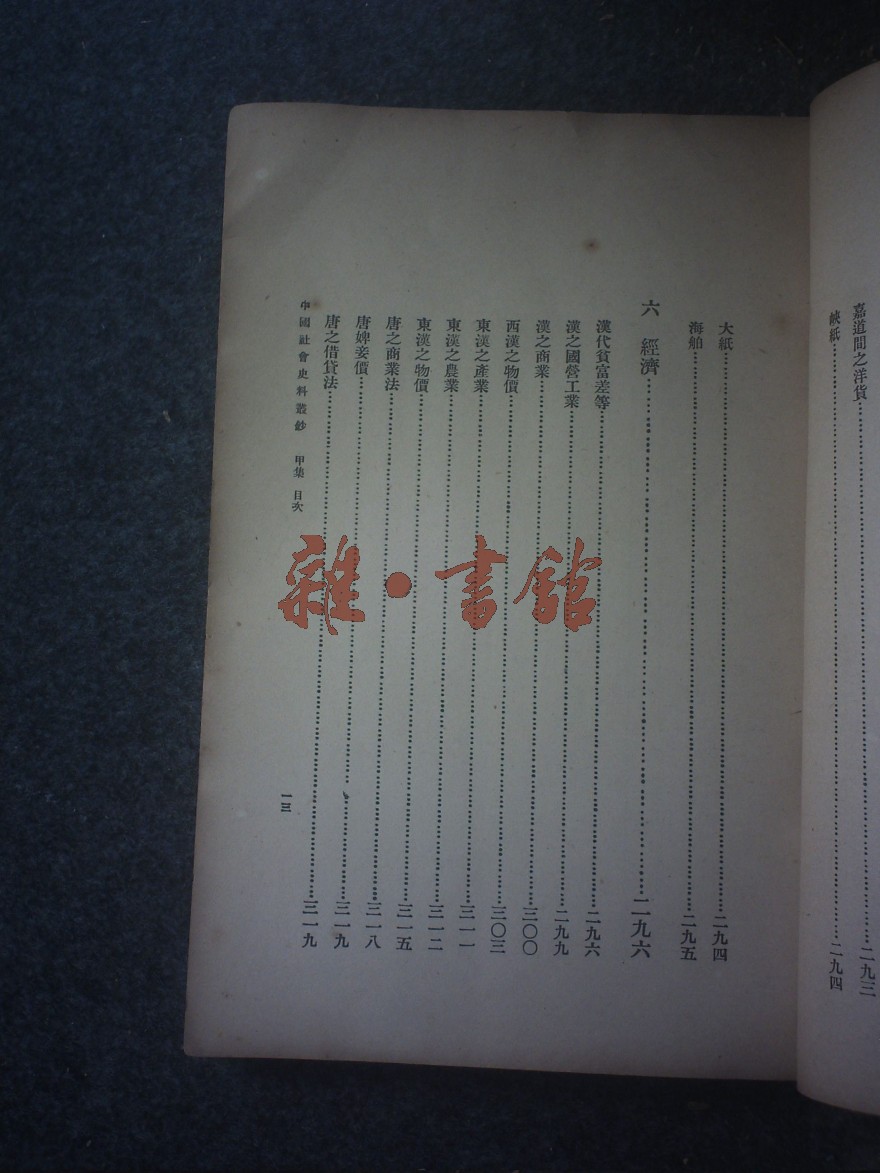 嘉道間之洋貨……二九三
紙……二九四
大紙……二九四
海舶……二九五
六 經濟……二九六
漢代貧富差等……二九六
漢之國營工業……二九九
漢之商業……三〇〇
西漢之物價……三〇三
東漢之產業……三一一
東漢之農業……三一二
東漢之物價……三一五
唐之商業法……三一八
唐婢妾價……三一九
唐之借貸法……三一九
中國社會史料叢鈔 甲集 目次
一三
雜·書館